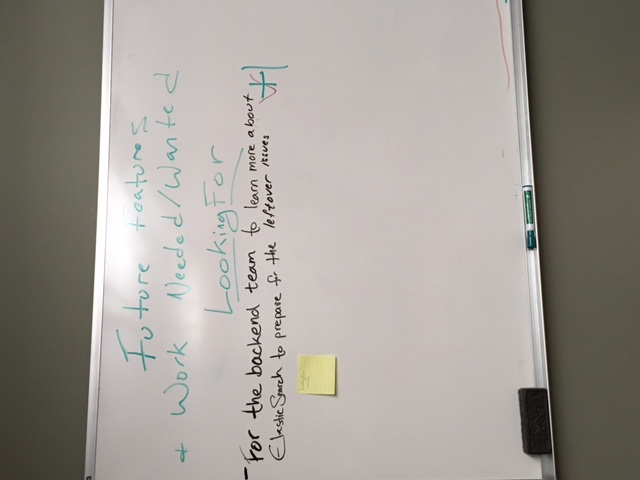 Future Features
+ Work Needed/Wanted
Looking For
- For the backend team to learn more about
ElasticSearch to prepare for the leftover issues
+1